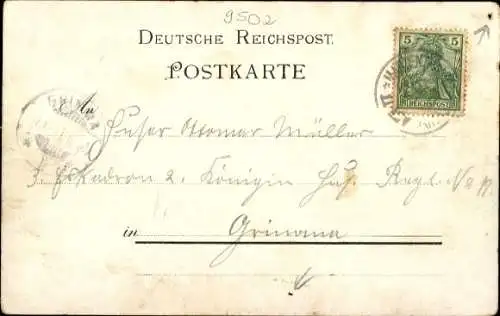 9502
DEUTSCHE REICHSPOST.
POSTKARTE
5 5
REICHSPOST
An
Husar Ottomar Müller
Eskadron 2. Königin Hus. Regt. No
in Grimma